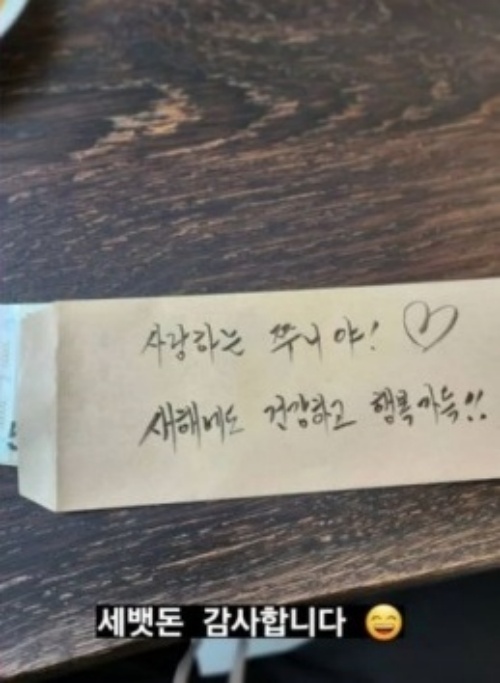 사랑하는 쭈니야! ♡
새해에도 건강하고 행복가득!!
세뱃돈 감사합니다 😄